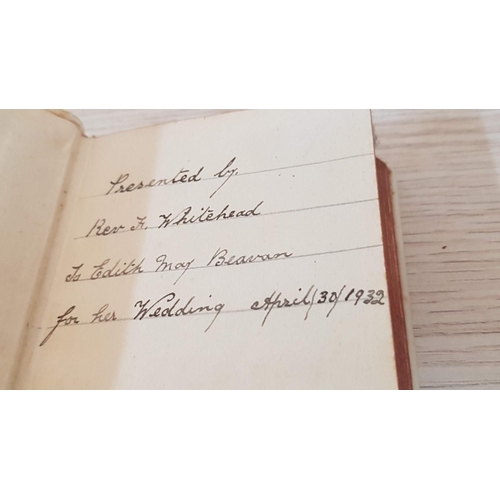 Presented by
Rev F. Whitehead
To Edith May Beavan
for her Wedding April/30/1932